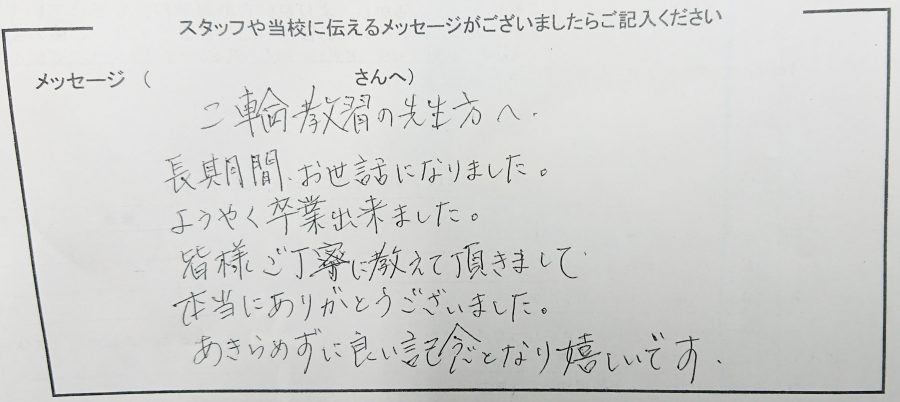 スタッフや当校に伝えるメッセージがございましたらご記入ください
メッセージ（　　　　　　　　　さんへ）
二輪教習の先生方へ.
長期間、お世話になりました。
ようやく卒業出来ました。
皆様ご丁寧に教えて頂きまして
本当にありがとうございました。
あきらめずに良い記念となり嬉しいです.